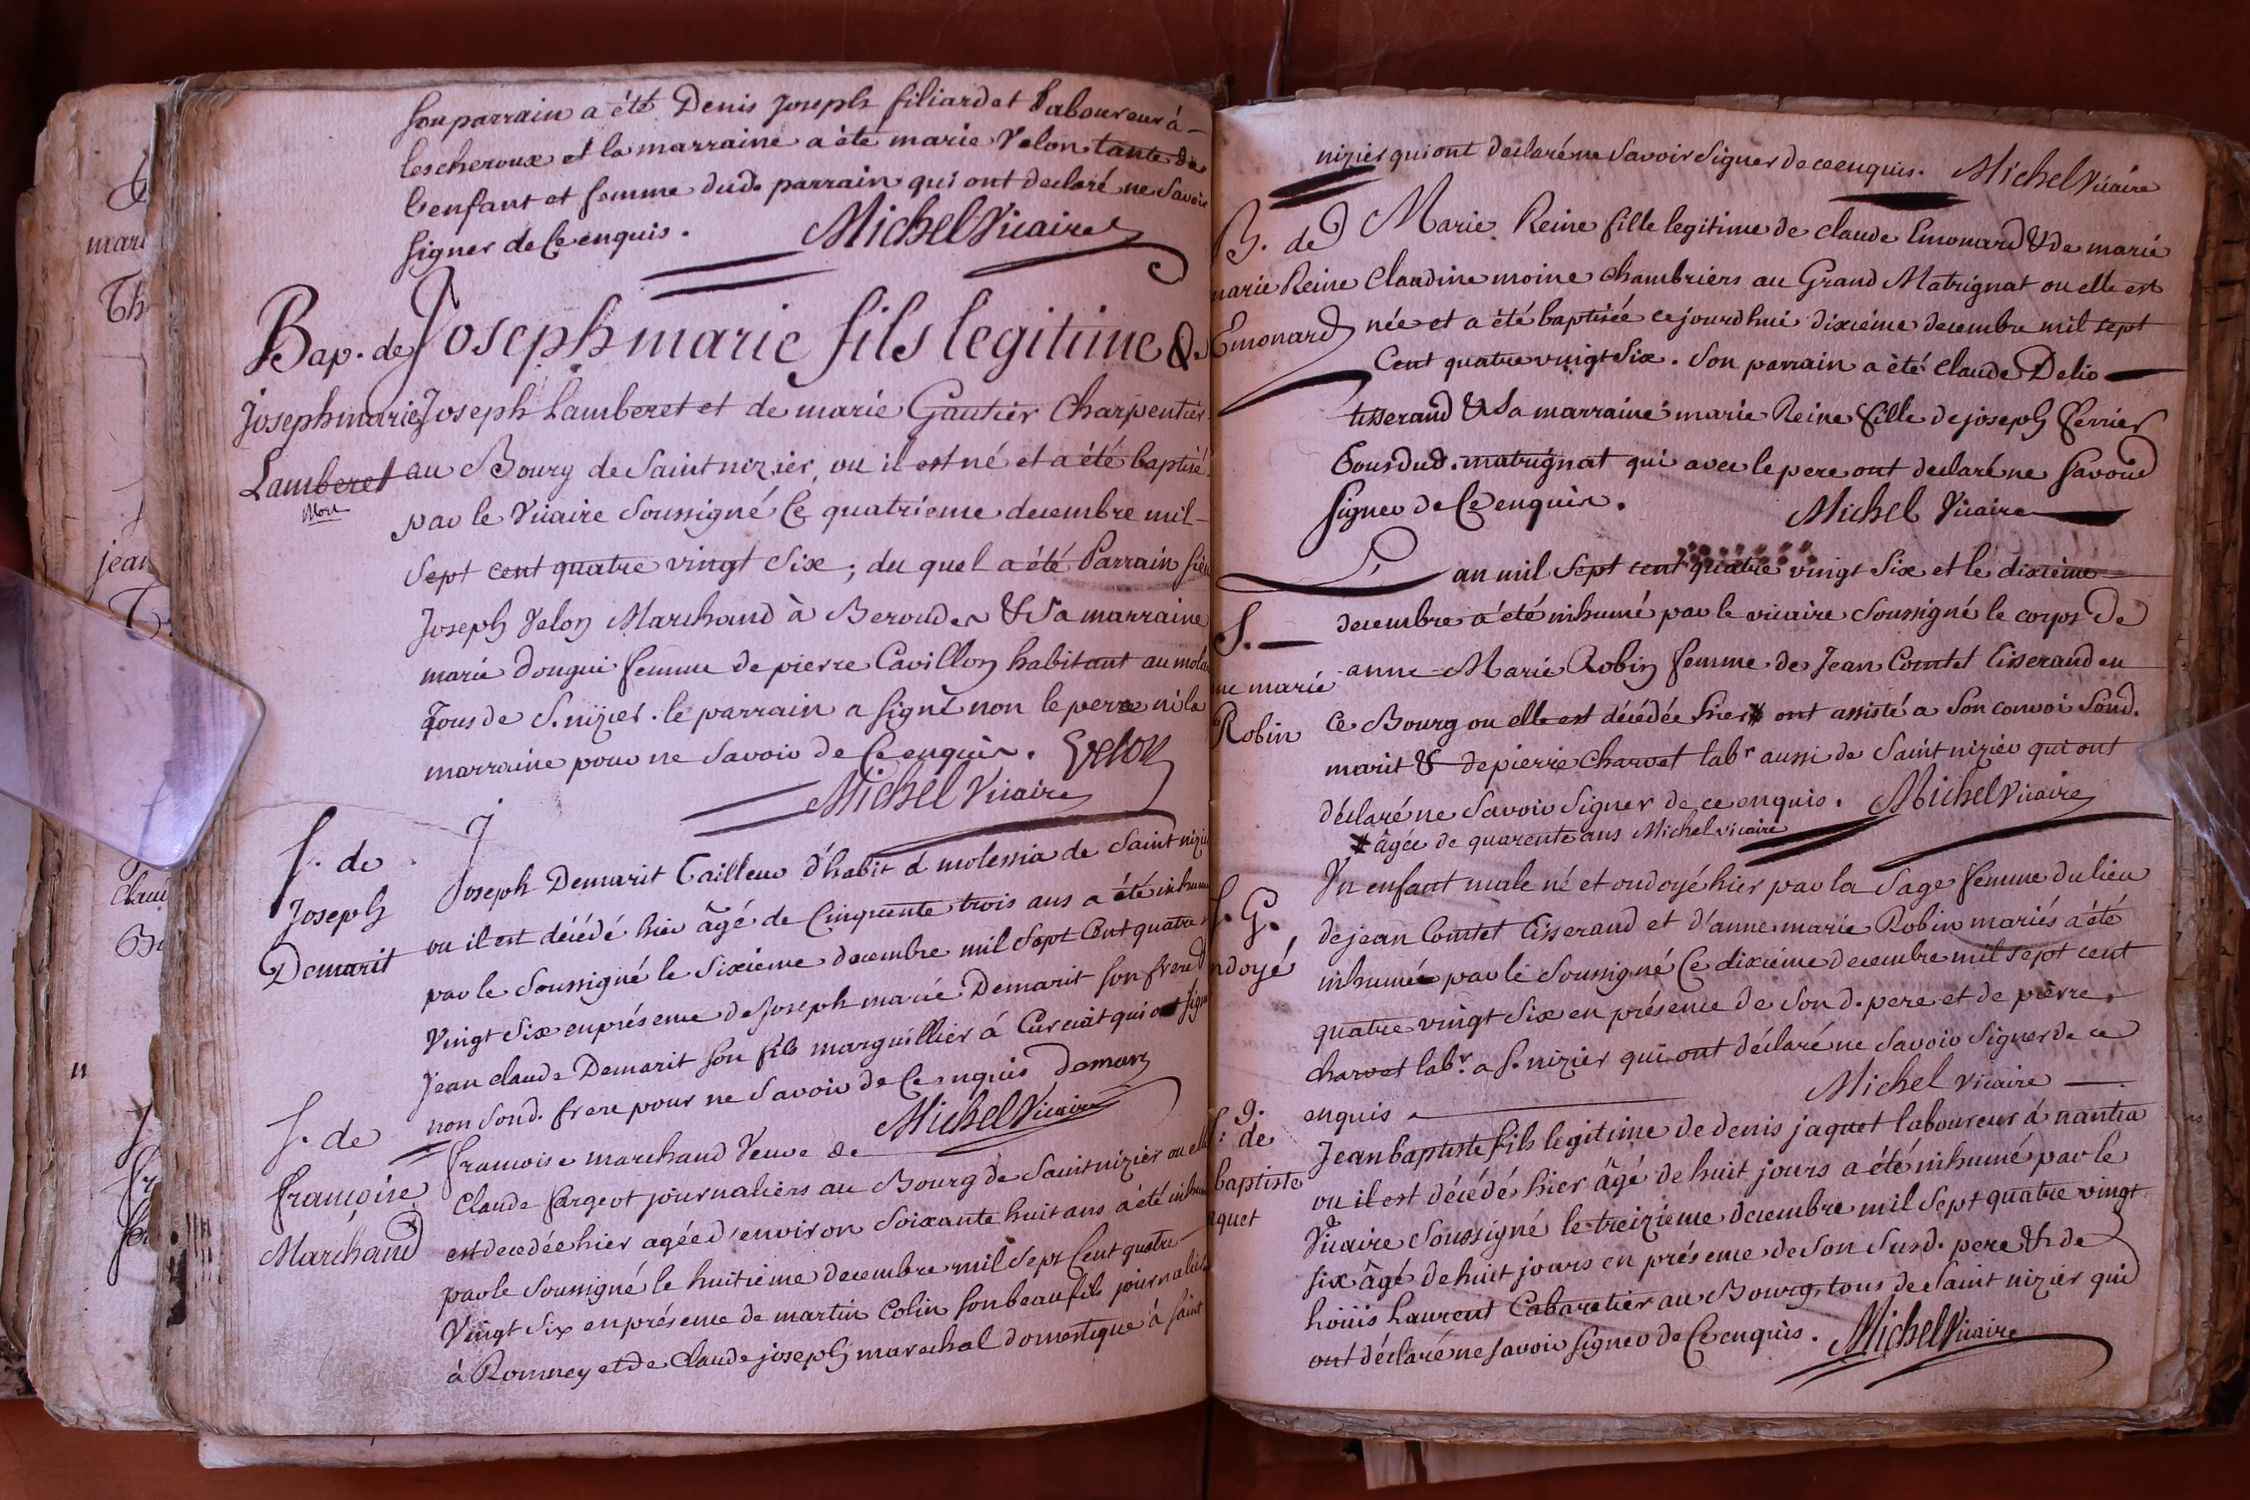 son parrain a été Denis Joseph filiardet Laboureur à
lescheroux et la marraine a été marie Velon tante de
l'enfant et femme dud. parrain qui ont declaré ne savoir
signer de ce enquis. Michel Vicaire
Bap. de Joseph marie fils legitime de
Joseph marie Joseph Lamberet et de marie Gautier Charpentier
Lamberet au Bourg de Saint nizier, ou il est né et a été baptisé
Mort
par le Vicaire soussigné Ce quatrieme decembre mil
sept cent quatre vingt six; du quel a été Parrain sieur
Joseph Velon Marchand à Beroudes & Sa marraine
marie dougui femme de pierre Cavillon habitant au
Tous de S. nizier. le parrain a signé non le pere ni la
marraine pour ne savoir de Ce enquis. Velon
Michel Vicaire
S. de
Joseph
Demarit
Joseph Demarit Tailleur d'habit à molessia de Saint nizier
ou il est décédé hier âgé de Cinquente trois ans a été inhumé
par le soussigné le sixieme decembre mil sept Cent quatre
Vingt six en présence de Joseph marie Demarit son frere &
jean claude Demarit son fils marguillier à Curciat qui ont signé
non sond. frere pour ne savoir de Ce enquis demary
Michel Vicaire
S. de
françoise
Marchand
françoise marchand Veuve de
Claude fargeot journaliers au Bourg de Saint nizier ou elle
est decedée hier agée d'environ soixante huit ans a été inhumée
par le soussigné le huitieme decembre mil sept Cent quatre
Vingt six en présence de martin Colin son beau fils journalier
à Romney et de Claude joseph marechal domestique à saint
nizier qui ont declaré ne savoir signer de ce enquis. Michel Vicaire
B. de
marie Reine
Emonard
Marie Reine fille legitime de claude Emonard & de marie
Claudine moine chambriers au Grand Matrignat ou elle est
née et a été baptisée ce jourd'hui dixieme decembre mil sept
Cent quatre vingt six. Son parrain a été claude Delio
tisserand & Sa marraine marie Reine fille de joseph ferrier
Tous dud. matrignat qui avec le pere ont declaré ne savoir
signer de Ce enquis.
Michel Vicaire
L'an mil sept cent quatre vingt six et le dixieme
S.
ne marie
Robin
decembre a été inhumé par le vicaire soussigné le corps de
anne Marie Robin femme de Jean Comtet tisserand en
Ce Bourg ou elle est décédée hier # ont assisté a son convoi sond.
marit & de pierre charvet labr aussi de Saint nizier qui ont
déclaré ne savoir signer de ce enquis. Michel Vicaire
# âgée de quarente ans Michel vicaire
S. G.
ndoyé
Un enfant male né et ondoyé hier par la sage femme du lieu
de jean Comtet tisserand et d'anne marie Robin mariés a été
inhumé par le soussigné Ce dixieme decembre mil sept cent
quatre vingt six en présence de son d. pere et de pierre
charvet labr. a S. nizier qui ont déclaré ne savoir signer de ce
enquis
Michel vicaire
S. de
baptiste
aquet
Jean baptiste fils legitime de denis jaquet laboureur à nantra
ou il est décédé hier âgé de huit jours a été inhumé par le
Vicaire soussigné le treizieme decembre mil sept quatre vingt
six âgé de huit jours en présence de son susd. pere & de
Laurent Cabaretier au Bourg, tous de Saint nizier qui
ont déclaré ne savoir signer de Ce enquis. Michel Vicaire